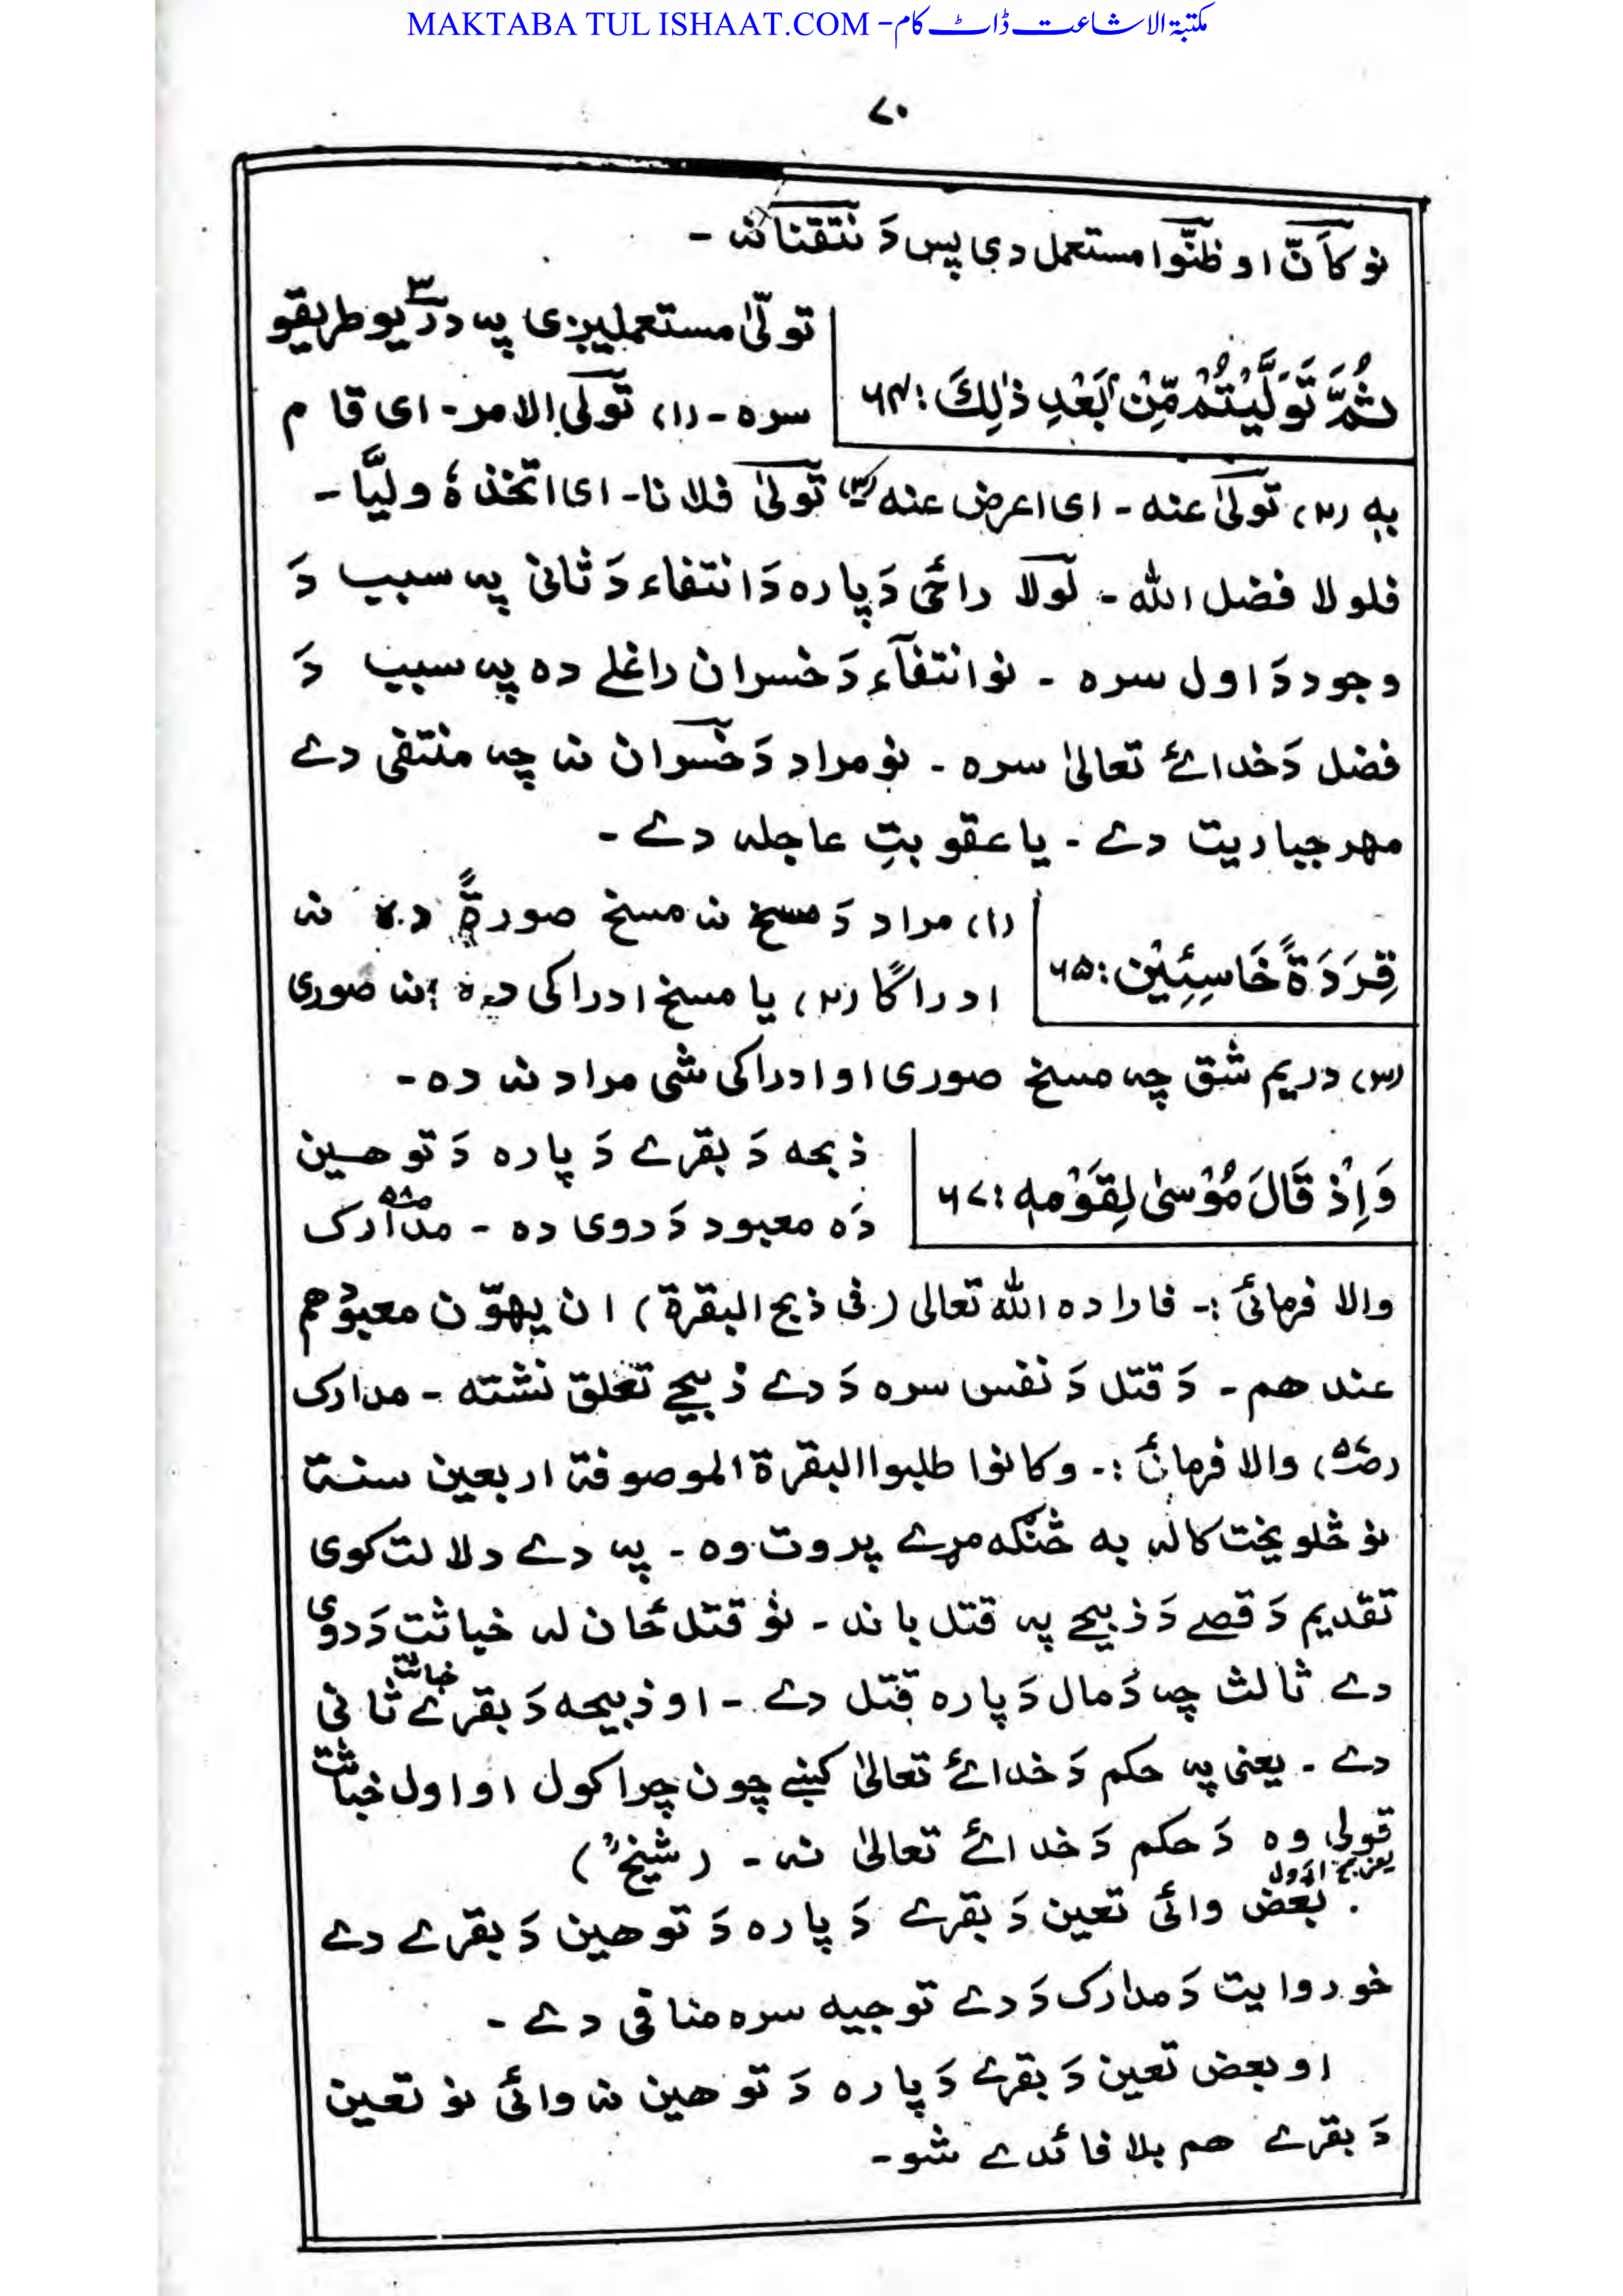 MAKTABA TUL ISHAAT.COM - مکتبۃ الاشاعت ڈاٹ کام
۷۰
نو کاَنّ او ظنّوا مستعمل دی پس دَ نتقنا نہ -
ثُمَّ تَوَلَّيْتُمْ مِّنْۢ بَعْدِ ذٰلِكَ : ۶۴
تولّیٰ مستعملیږی پہ دریو ۳ طریقو
سرہ - (۱) تولی الامر - ای قام
بہٖ (۲) تولیٰ عنہ - ای اعرض عنہ (۳) تولیٰ فلانا - ای اتخذہٗ ولیًّا -
فلولا فضل اللہ - لولا راځی دَپارہ دَ انتفاء دَ ثانی پہ سبب دَ
وجود دَ اول سرہ - نو انتفآء دَ خسران راغلے دہ پہ سبب دَ
فضل دَ خدائے تعالیٰ سرہ - نو مراد دَ خسران نہ چہ منتفی دے
مهر جباریت دے - یا عقوبتِ عاجلہ دے -
قِرَدَةً خَاسِئِيْن : ۶۵
(۱) مراد دَ مسخ نہ مسخ صورۃً دہ نہ
ادراکًا (۲) یا مسخ ادراکی دہ نہ صوری
(۳) دریم شق چہ مسخ صوری او ادراکی شی مراد نہ دہ -
وَاِذْ قَالَ مُوْسٰى لِقَوْمِهٖ : ۶۷
ذبحہ دَ بقرے دَ پارہ دَ توهین
دَہ معبود دَ دوی دہ - مدارک ص۵۸
والا فرمائی :- فارادہ اللہ تعالی (فی ذبح البقرۃ) ان یهوّن معبودهم
عندهم - دَ قتل دَ نفس سرہ دَ دے ذبیحے تعلق نشتہ - مدارک
(ص۵۶) والا فرمائی :- وکانوا طلبوا البقرۃ الموصوفۃ اربعین سنۃ
نو څلویښت کالہ بہ څنګہ مړے پروت وہ - پہ دے دلالت کوی
تقدیم دَ قصے دَ ذبیحے پہ قتل باند - نو قتل ځان لہ خباثت دَ دوی
دے ثالث چہ دَ مال دَ پارہ قتل دے - او ذبیحہ دَ بقرے خباثت ثانی
دے - یعنی پہ حکم دَ خدائے تعالیٰ کښے چون چرا کول او اول خباثت
قولی وہ دَ حکم دَ خدائے تعالیٰ نہ - (شیخؒ)
بعض وائی تعین دَ بقرے دَ پارہ دَ توهین دَ بقرے دے
خو روایت دَ مدارک دَ دے توجیہ سرہ منافی دے -
او بعض تعین دَ بقرے دَ پارہ دَ توهین نہ وائی نو تعین
دَ بقرے هم بلا فائدے شو -